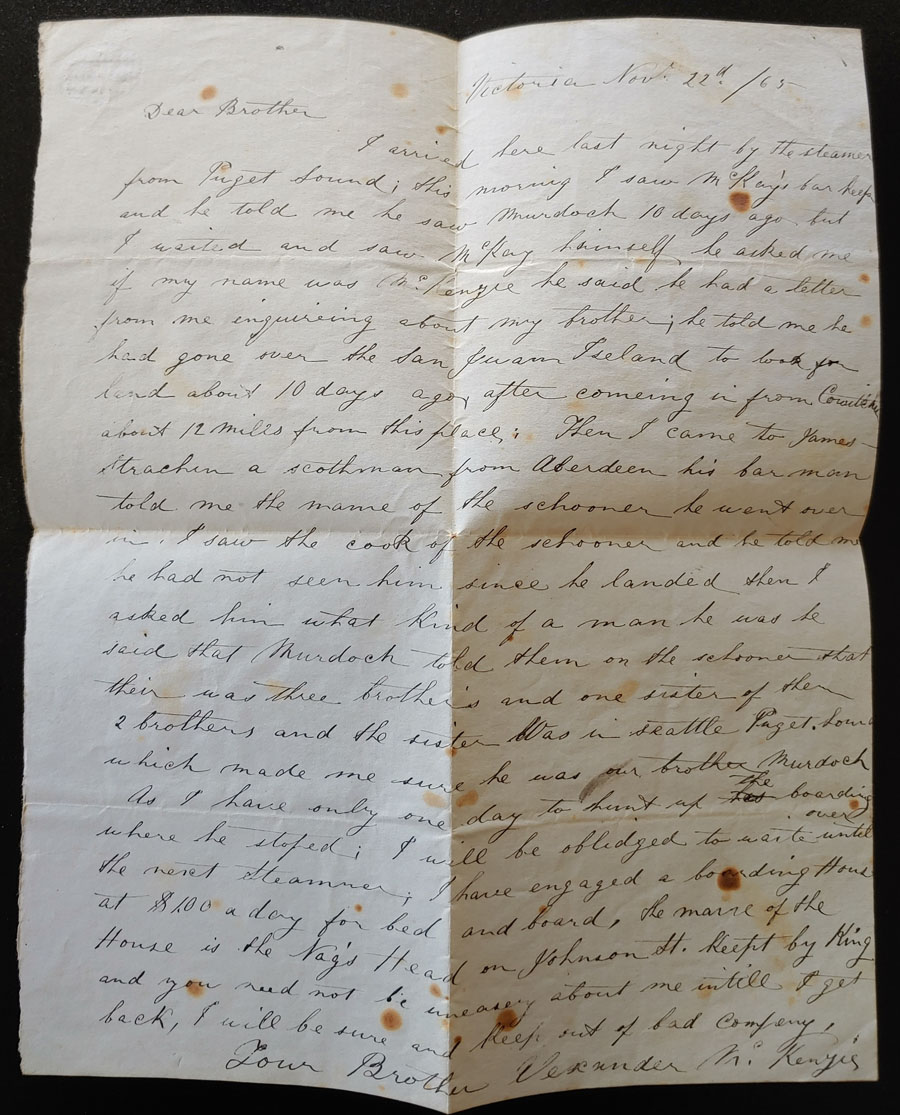 Victoria Nov. 22d /65
Dear Brother
I arrived here last night by the steamer
from Puget Sound; this morning I saw McKay's bar keep
and he told me he saw Murdoch 10 days ago but
I waited and saw McKay himself he asked me
if my name was Mc.Kenzie he said he had a letter
from me inquireing about my brother; he told me he
had gone over the San Juan Iseland to look for
land about 10 days ago, after comeing in from
about 12 miles from this place; Then I came to James
Strachin a scothman from Aberdeen his bar man
told me the mame of the schooner he want over
in. I saw the cook of the schooner and he told me
he had not seen him since he landed then I
asked him what kind of a man he was he
said that Murdoch told them on the schooner that
their was three brothers and one sister of them
2 brothers and the sister Was in seattle Puget. Sound
which made me sure he was our brother Murdoch
As I have only one day to hunt up the boarding
over
where he stoped; I will be obledged to waite until
the next Steamner; I have engaged a boarding House
at $1.00 a day for bed and board, the mame of the
House is the Nag's Head on Johnson St. Keept by King
and you need not be uneasey about me intill I get
back, I will be sure and keep out of bad compeny,
Your Brother Mc. Kenzie